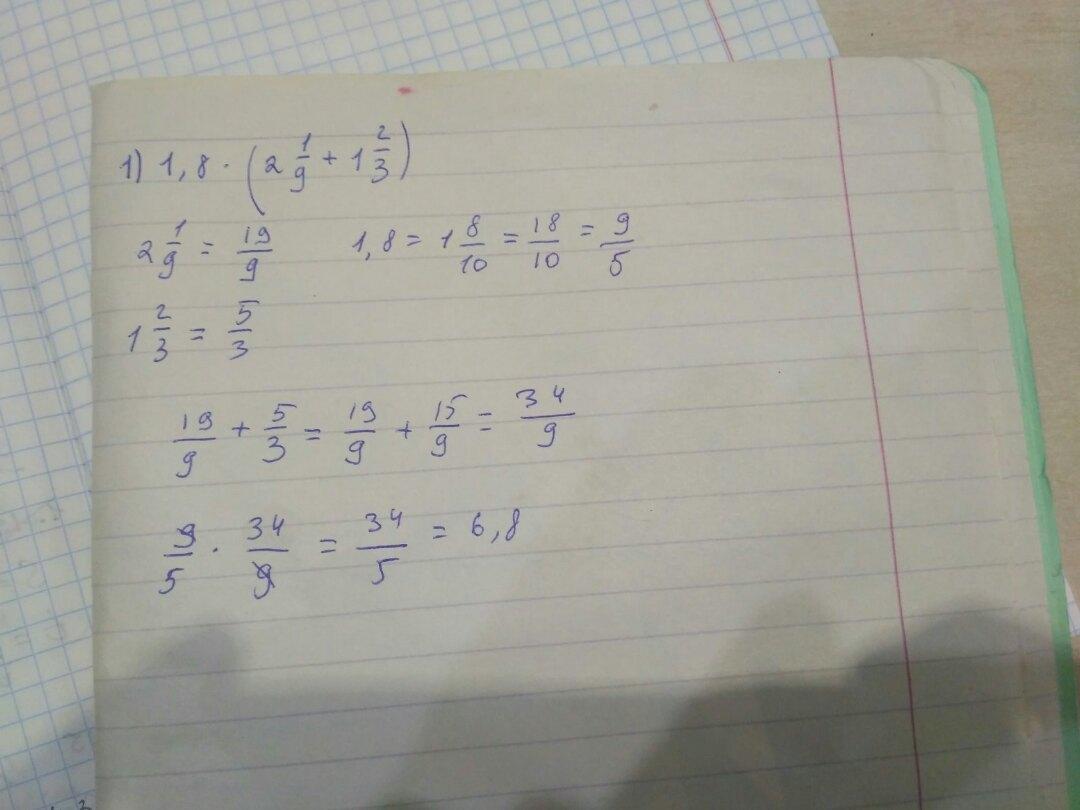 1) 1,8 · (2 1/9 + 1 2/3)
2 1/9 = 19/9 1,8 = 1 8/10 = 18/10 = 9/5
1 2/3 = 5/3
19/9 + 5/3 = 19/9 + 15/9 = 34/9
9/5 · 34/9 = 34/5 = 6,8